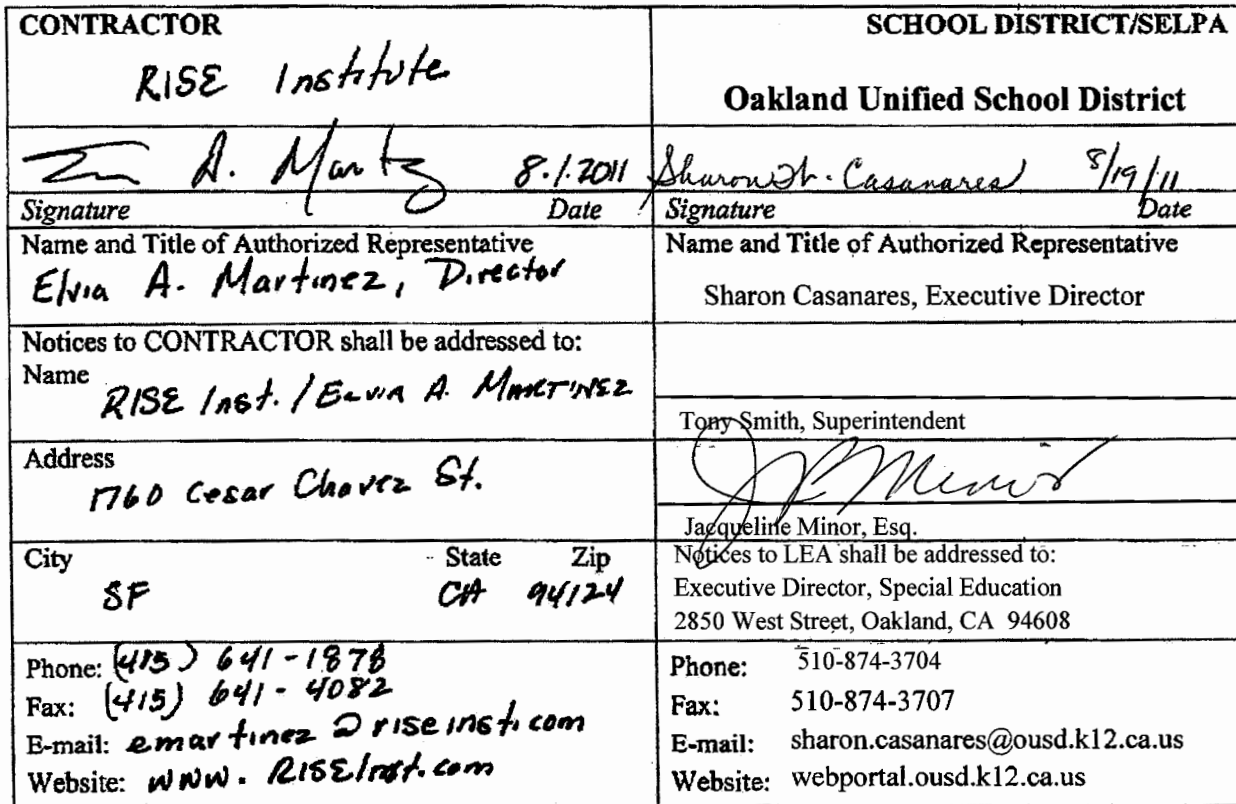 CONTRACTOR
RISE Institute
A. Martz 8.1.2011
Signature Date
Name and Title of Authorized Representative
Elvia A. Martinez, Director
Notices to CONTRACTOR shall be addressed to:
Name
RISE Inst. / ELVIA A. MARTINEZ
Address
1760 Cesar Chavez St.
City State Zip
SF CA 94124
Phone: (415) 641-1878
Fax: (415) 641-4082
E-mail: emartinez@riseinst.com
Website: www.RISEInst.com
SCHOOL DISTRICT/SELPA
Oakland Unified School District
Sharon Casanares 8/19/11
Signature Date
Name and Title of Authorized Representative
Sharon Casanares, Executive Director
Tony Smith, Superintendent
Minor
Jacqueline Minor, Esq.
Notices to LEA shall be addressed to:
Executive Director, Special Education
2850 West Street, Oakland, CA 94608
Phone: 510-874-3704
Fax: 510-874-3707
E-mail: sharon.casanares@ousd.k12.ca.us
Website: webportal.ousd.k12.ca.us